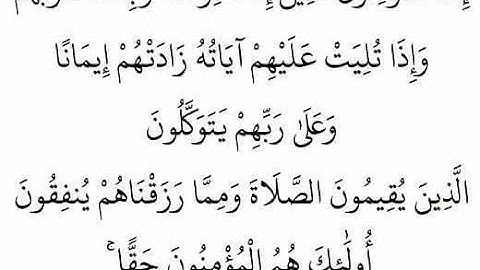 وَإِذَا تُلِيَتْ عَلَيْهِمْ آيَاتُهُ زَادَتْهُمْ إِيمَانًا
وَعَلَىٰ رَبِّهِمْ يَتَوَكَّلُونَ
الَّذِينَ يُقِيمُونَ الصَّلَاةَ وَمِمَّا رَزَقْنَاهُمْ يُنفِقُونَ
أُولَٰئِكَ هُمُ الْمُؤْمِنُونَ حَقًّا ۚ